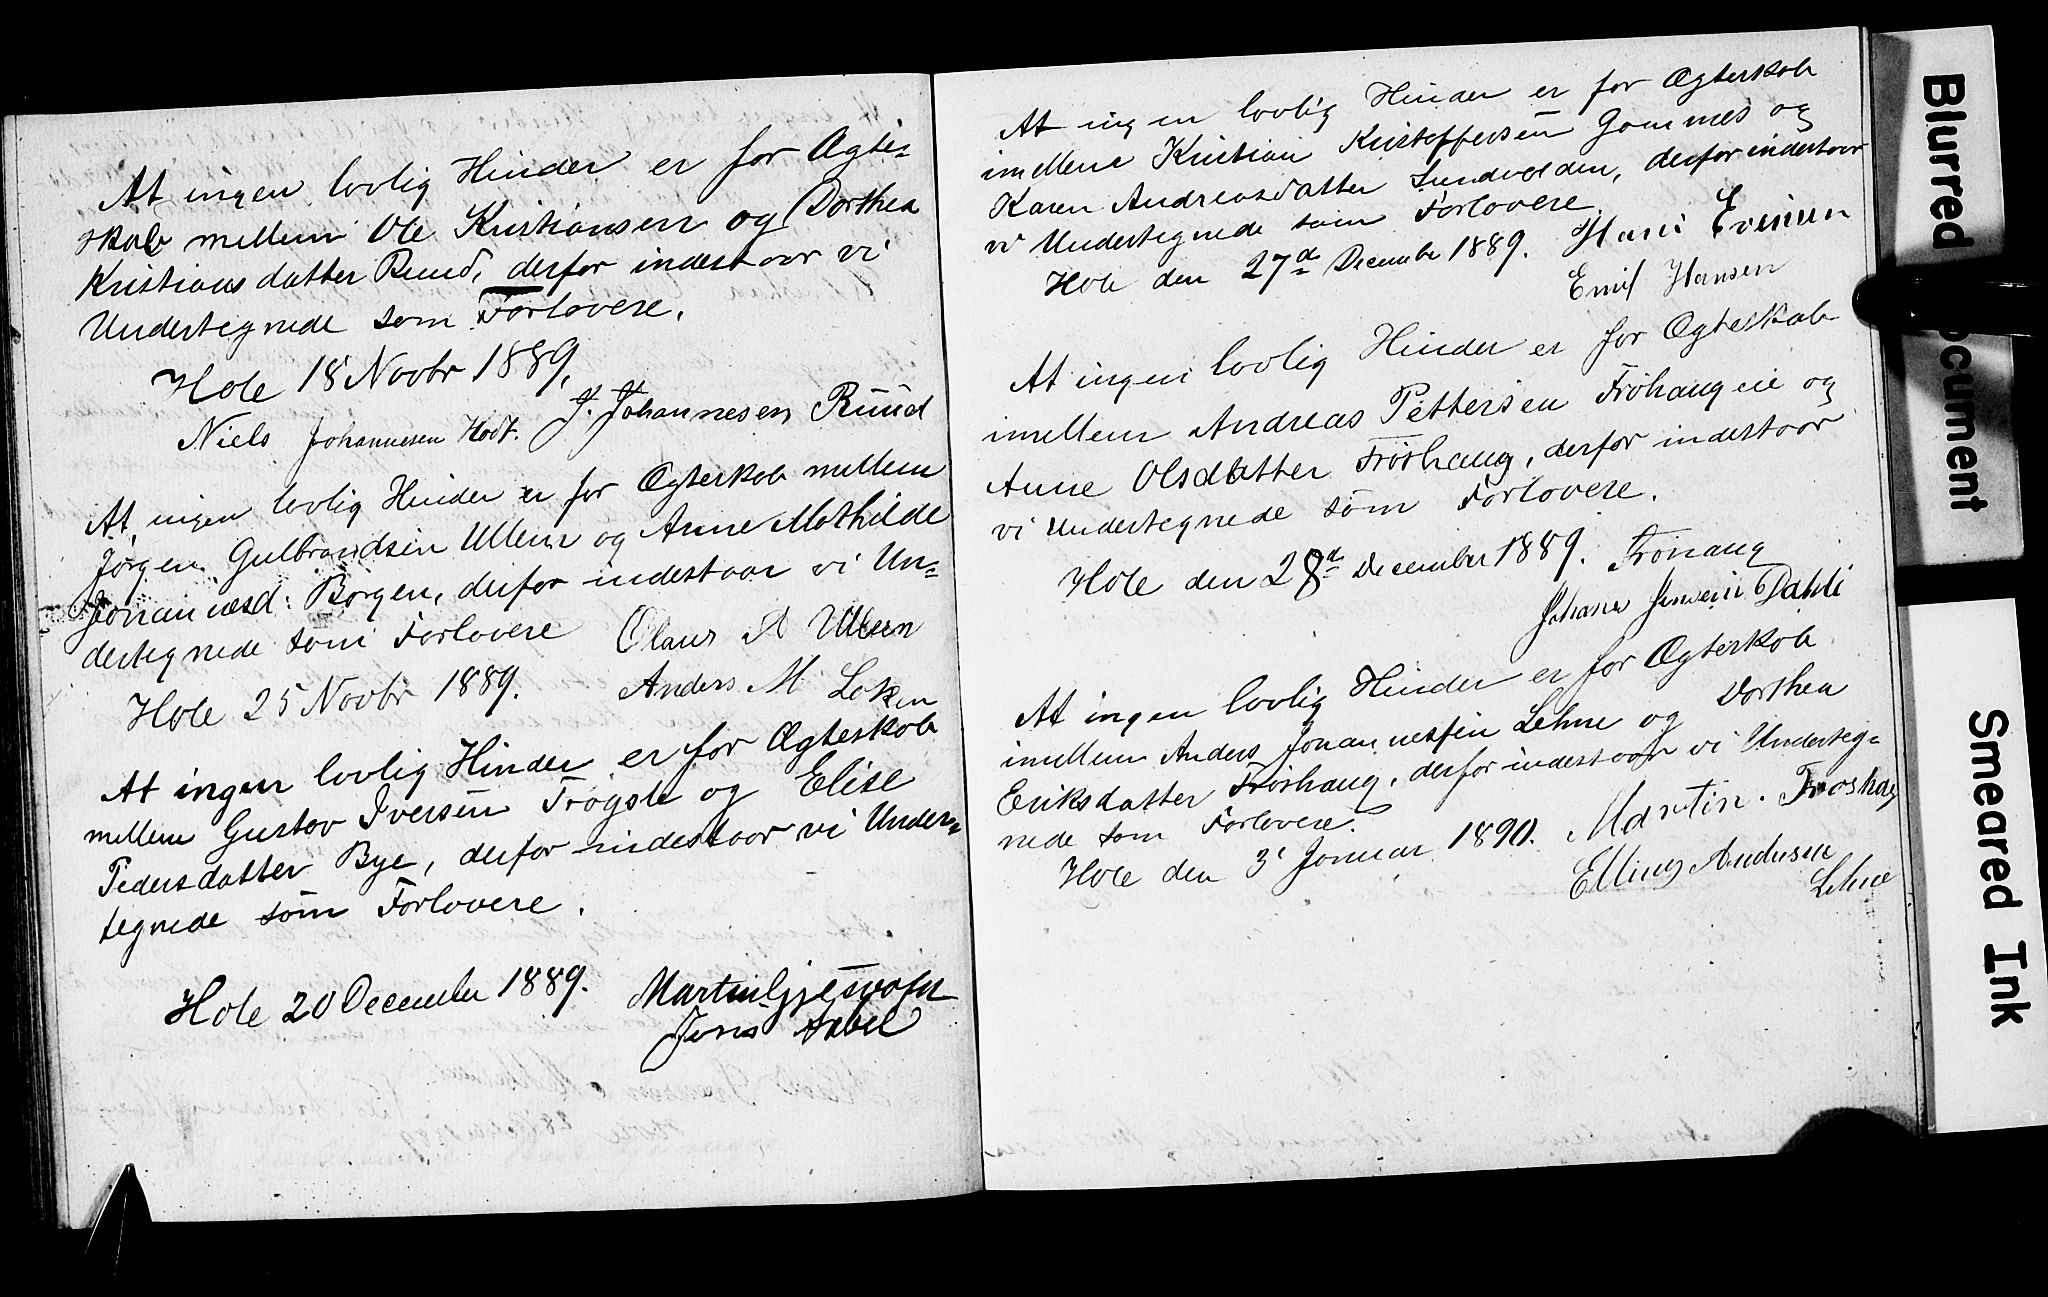 At ingen lovlig Hinder er for Ægte-
skab mellem Ole Kristiansen og Dorthea
Kristiansdatter Ruud, derfor indestaar vi
Undertegnede som Forlovere.
Hole 18 Novbr 1889.
Niels Johannesen Hodt. J. Johannesen Ruud
At ingen lovlig Hinder er for Ægteskab mellem
Jørgen Gulbrandsen Ullern og Anne Mathilde
Johannesd: Borgen, derfor indestaar vi Un-
dertegnede som Forlovere Olaus A Ullern
Hole 25 Novbr 1889. Anders M Loken
At ingen lovlig Hinder er for Ægteskab
mellem Gustav Iversen Trøgsle og Elise
Pedersdatter Bye, derfor indestaar vi Under-
tegnede som Forlovere.
Hole 20 December 1889. Martin
Jens
At ingen lovlig Hinder er for Ægteskab
imellem Kristian Kristoffersen Gommes og
Karen Andreasdatter Sundvolden, derfor indestaar
vi Undertegnede som Forlovere
Hole den 27d December 1889. Hans Evensen
Emil Hansen
At ingen lovlig Hinder er for Ægteskab
imellem Andreas Pettersen Frøhaugeie og
Anne Olsdatter Frøshaug, derfor indestaar
vi Undertegnede som Forlovere.
Hole den 28d December 1889.
Johans Jensen Dahli
At ingen lovlig Hinder er for Ægteskab
imellem Anders Johannessen Lehne og Dorthea
Eriksdatter Frøshaug, derfor indestaar vi Underteg-
nede som Forlovere.
Hole den 3' Januar 1890. Martin. Froshaug
Elling Andersen
Lehne
Blurred Document
Smeared Ink